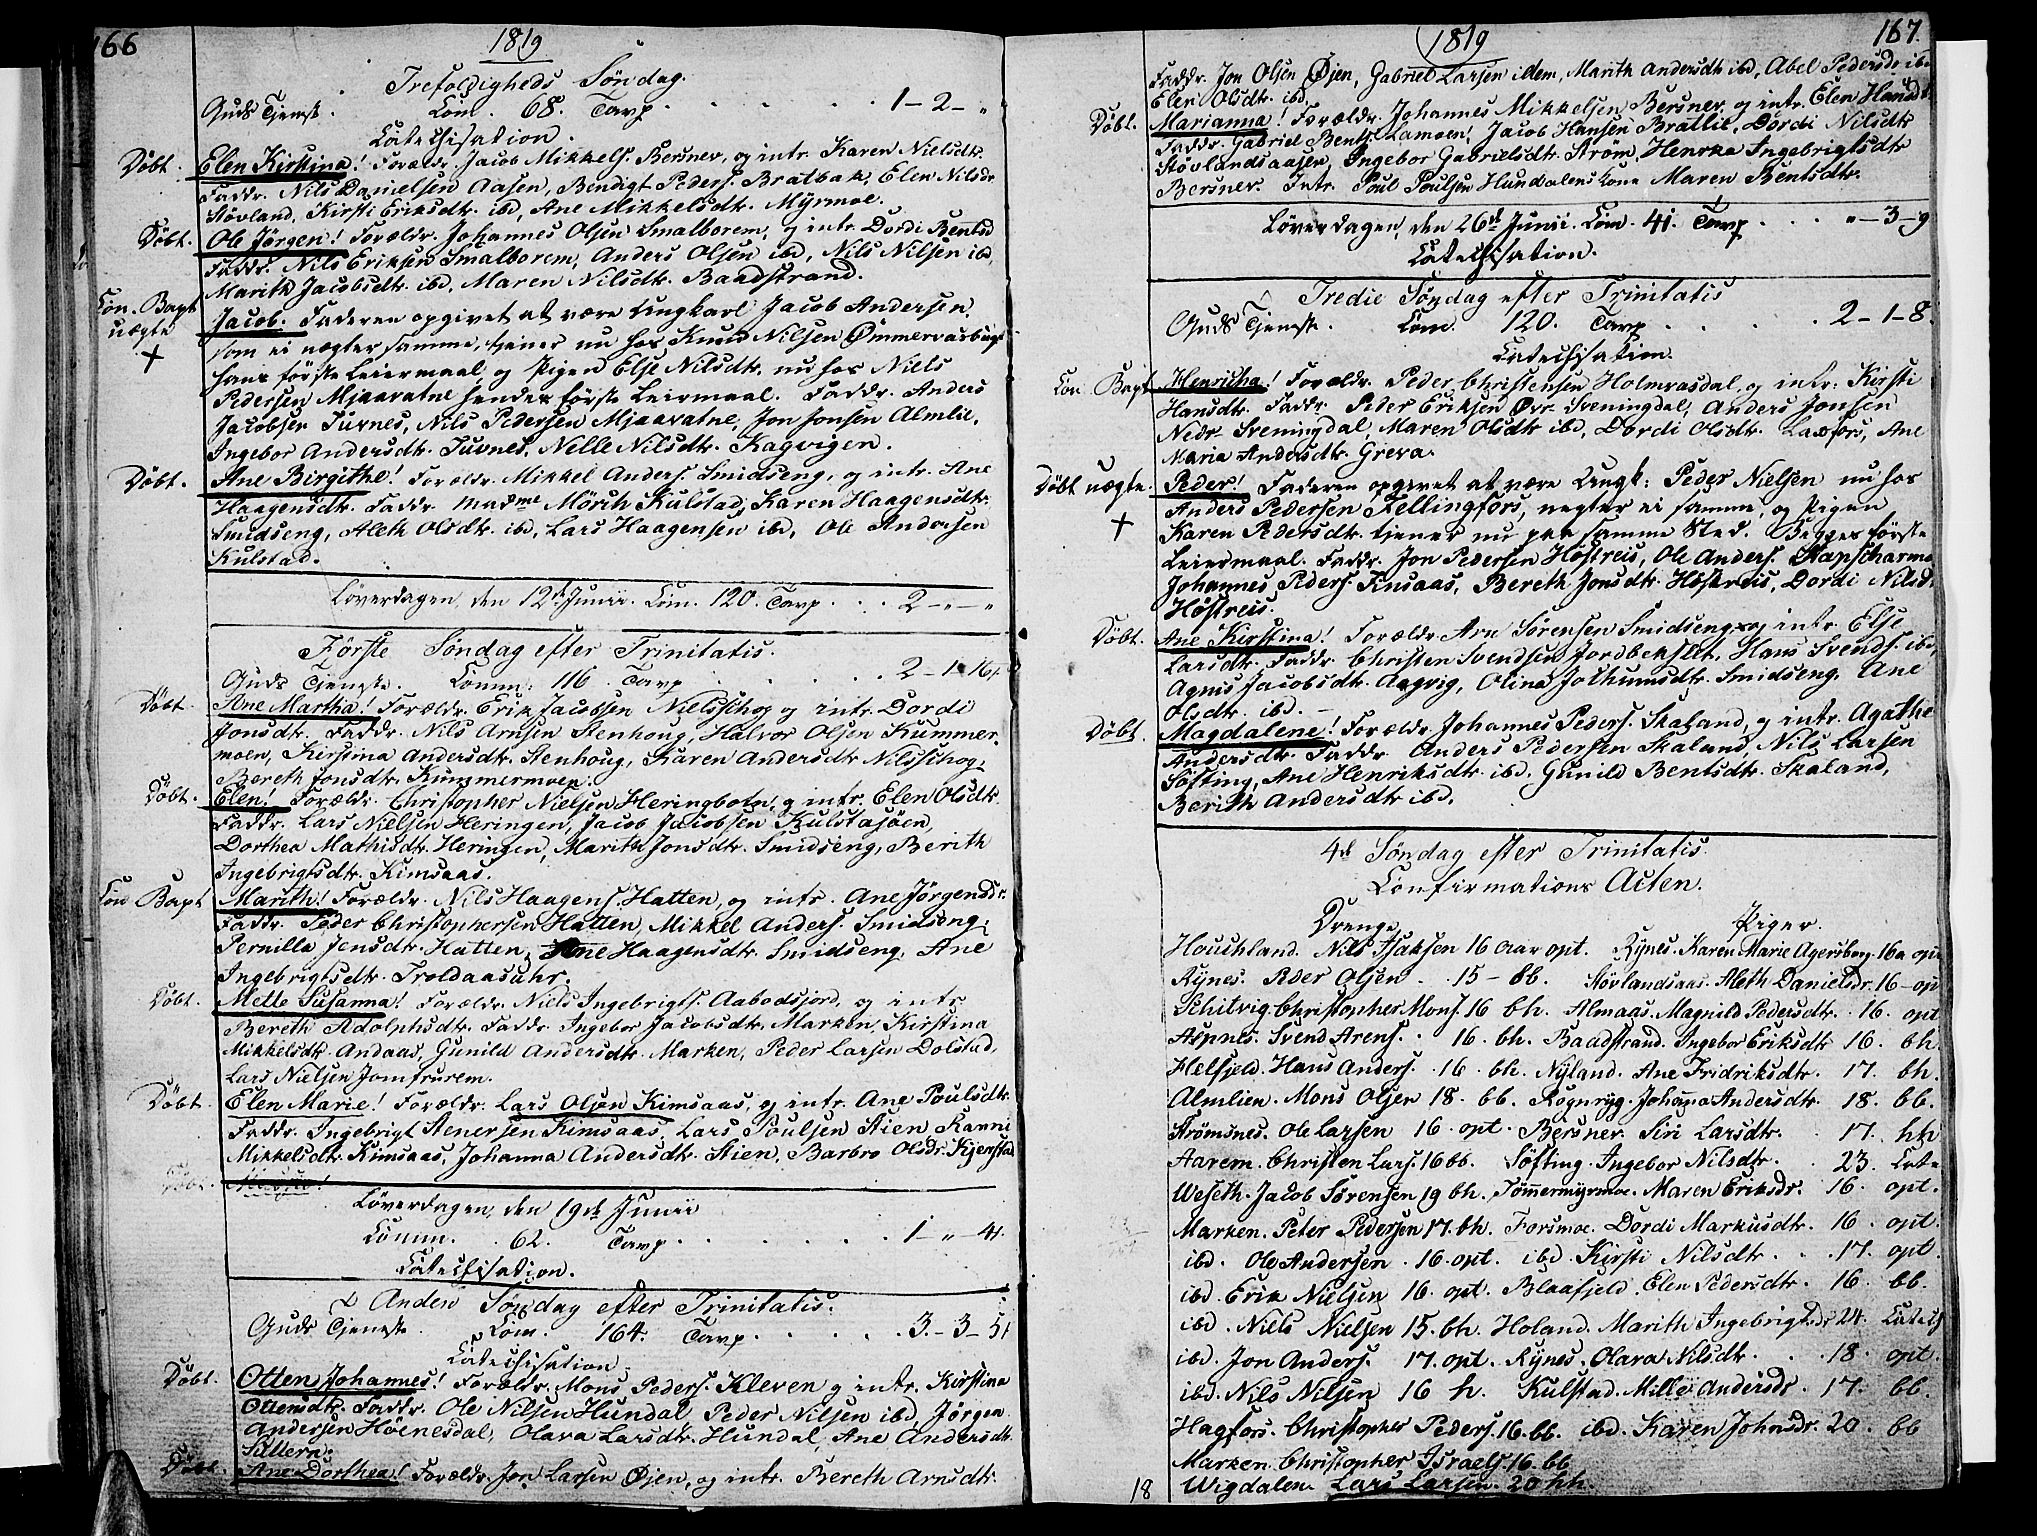 166
1819
Trefoldigheds Søndag.
Guds Tjeneste. Com. 68. Tavl. 1-2-"
Catechisation.
Døbt. Elen Kirstina! Forældr. Jacob Mikkels. Bersner, og intr. Karen Nielsdtr.
Faddr. Nils Danielsen Aasen, Bendigt Peders. Bratbak, Elen Nilsdr
Stövland, Kirsti Eriksdtr. ibd, Ane Mikkelsdtr. Myrmoe.
Døbt. Ole Jörgen! Forældr. Johannes Olsen Smalborem, og intr. Dordi Bentsd
Faddr. Nils Eriksen Smalborem, Anders Olsen ibd, Nils Nilsen ibd,
Marith Jacobsdtr. ibd, Maren Nilsdtr. Baadstrand.
Con. Bapt uægte + Jacob. Faderen opgivet at være Ungkarl Jacob Andersen
som ei nægter samme, tjener nu hos Knud Nilsen Ømmervasbugt
hans første Leiermaal, og Pigen Else Nilsdtr. nu hos Niels
Pedersen Mjaavatne hendes første Leiermaal. Faddr. Anders
Jacobsen Tuvnes, Nils Pedersen Mjaavatne, Jon Jonsen Almlie,
Ingebor Andersdtr. Tuvnes, Nelle Nilsdtr. Kagvigen.
Døbt. Ane Birgithe! Forældr. Mikkel Anders. Smidseng, og intr. Ane
Haagensdtr. Faddr. Madme Mörch Kulstad, Karen Haagensdtr.
Smidseng, Aleth Olsdtr. ibd, Lars Haagensen ibd, Ole Andersen
Kulstad.
Löverdagen, den 12te Junii. Com. 120. Tavl. 2-"-"
Første Søndag efter Trinitatis.
Guds Tjeneste. Comm: 116. Tavl. 2-1-16.
Døbt. Ane Martha! Forældr. Erik Jacobsen Nielsskog og intr. Dordi
Jonsdtr. Faddr. Nils Arnsen Stenhoug, Halvor Olsen Kummer-
moen, Kirstina Andersdtr. Stenhoug, Karen Andersdtr Nilsskog,
Bereth Jonsdtr. Kummermoen.
Døbt. Elen! Forældr. Christopher Nielsen Heringbotn, og intr. Elen Olsdtr.
Faddr. Lars Nielsen Heringen, Jacob Jacobsen Kulstasjöen,
Dorthea Mathisdtr. Heringen, Marith Jonsdtr. Smidseng, Berith
Ingebrigtsdtr. Kimsaas.
Con Bapt Marith! Forældr. Nils Haagens. Hatten, og intr. Ane Jörgensdr.
Faddr. Peder Christophersen Hatten, Mikkel Anders. Smidseng,
Pernilla Jensdtr. Hatten, Ane Haagensdtr. Smidseng, Ane
Ingebrigtsdtr. Troldaasuhr.
Døbt. Mette Susanna! Forældr. Niels Ingebrigts. Aabodsjord, og intr.
Bereth Adolphsdtr. Faddr. Ingebor Jacobsdtr. Marken, Kirstina
Mikkelsdtr. Andaas, Gunild Andersdtr. Marken, Peder Larsen Dolstad,
Lars Nielsen Jomfrurem.
Døbt. Elen Marie! Forældr. Lars Olsen Kimsaas, og intr. Ane Poulsdtr.
Faddr. Ingebrigt Stenersen Kimsaas, Lars Poulsen Stien, Karni
Mikkelsdtr. Kimsaas, Johanna Andersdtr. Stien, Barbro Olsdr. Kjerstad
Löverdagen, den 19de Junii
Comm. 62. Tavl. 1-"-4.
Catechisation.
Anden Søndag efter Trinitatis.
Guds Tjeneste. Com. 164. Tavl. 3-3-5
Catechisation
Døbt. Otten Johannes! Forældr. Mons Peders. Kleven og intr. Kirstina
Ottensdtr. Faddr. Ole Nilsen Hundal, Peder Nilsen ibd, Jörgen
Andersen Höenesdal, Olava Larsdtr. Hundal, Ane Andersdtr
Sættern.
Døbt. Ane Dorthea! Forældr. Jon Larsen Øjen, og intr. Bereth Arnsdtr.
1819
167.
Faddr. Jon Olsen Øjen, Gabriel Larsen idem, Marith Andersdtr ibd, Abel Pedersdr ibd
Elen Olsdtr. ibd.
Døbt. Marianna! Forældr. Johannes Mikkelsen Bersner, og intr. Elen Hansdt.
Faddr. Gabriel Bents. Lamoen, Jacob Hansen Bratlie, Dordi Nilsdtr
Stövlandsaasen, Ingebor Gabrielsdtr. Ström, Henrka Ingebrigtsdtr
Bersner. Intr. Poul Poulsen Hundalens Kone Maren Bentsdtr.
Löverdagen, den 26de Junii. Com. 41. Tavl. "-3-9
Catechisation.
Tredie Søndag efter Trinitatis
Guds Tjeneste. Com. 120. Tavl. 2-1-8.
Catechisation.
Con Bapt Henricha! Forældr. Peder Christensen Holmvasdal, og intr. Kirsti
Hansdtr. Faddr. Peder Eriksen Øvr. Sveningdal, Anders Jonsen
Nedr. Sveningdal, Maren Olsdtr ibd, Dordi Olsdtr. Laxfors, Ane
Maria Andersdtr. Greva.
Døbt uægte. + Peder! Faderen opgivet at være Ungk: Peder Nielsen nu hos
Anders Pedersen Fellingfors, negter ei samme, og Pigen
Karen Pedersdtr. tjener nu paa samme Sted. Begges første
Leiermaal. Faddr. Jon Pedersen Höstreis, Ole Anders. Stapskarmo
Johannes Peders. Finsaas, Bereth Jonsdtr. Höstreis, Dordi Nilsdt.
Höstreis.
Døbt. Ane Kirstina! Forældr. Arn Sörensen Smidseng, og intr. Else
Larsdtr. Faddr. Christen Svendsen Jordbekslet, Hans Svends. ibd,
Agnis Jacobsdtr. Aagvig, Olina Jochumsdtr. Smidseng, Ane
Olsdtr. ibd.
Døbt. Magdalene! Forældr. Johannes Peders. Skaland, og intr. Agathe
Andersdtr. Faddr. Anders Pedersen Skaland, Nils Larsen
Söfting, Ane Henriksdtr. ibd, Gunild Bentsdtr. Skaland,
Berith Andersdtr ibd.
4de Søndag efter Trinitatis.
Confirmations Acten.
Drenge. Piger.
Houskland. Nils Isaksen 16 aar opt. Rynes. Karen Marie Agersborg. 16a opt
Rynes. Peder Olsen. 15- bb. Stövlandsaas. Aleth Danielsdr. 16- opt
Schitvig. Christopher Mons. 16 bh. Almaas. Magnild Pedersdtr. 16. opt
Aspnes. Svend Arens. 16. bh. Baadstrand. Ingebor Eriksdtr 16. bh.
Helfjeld. Hans Anders. 16. bh. Nyland. Ane Fridriksdtr. 17. bh.
Almlien. Mons Olsen 18. bb. Rognryg. Johanna Andersdtr. 18. bb.
Strömsnes. Ole Larsen 16. opt. Bersner. Siri Larsdtr. 17. hh
Aarem. Christen Lars. 16 bb. Söfting. Ingebor Nilsdtr. 23. Cate
Weseth. Jacob Sörensen 19 bh. Tömmermyrmoe. Maren Eriksdr. 16. opt.
Marken. Peter Pedersen 17. bh. Forsmoe. Dordi Markusdtr. 16. opt.
ibd. Ole Andersen. 16. opt. ibd. Kirsti Nilsdtr. 17. opt.
ibd Erik Nielsen 16. opt. Blaafjeld. Elen Pedersdtr. 16. bb.
ibd. Niels Nielsen 15. bh. Holand. Marith Ingebrigtsdr 24. Catech
ibd. Jon Anders. 17. opt. Rynes. Olava Nilsdtr. 18. opt.
ibd. Nils Nilsen 16 h. Kulstad. Mille Andersdr. 17. bb.
Hagfors. Christopher Peders. 16. bb. ibd. Karen Johnsdr. 20. bb
Marken. Christopher Israels. 16. bb
18 Wigdalen. Lars Larsen. 20 hh.